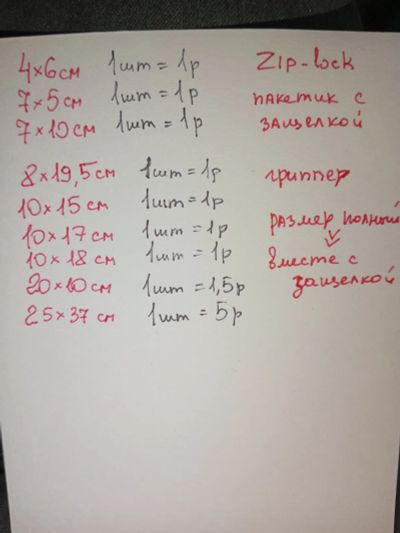 4×6см 1шт = 1р Zip-lock
7×5см 1шт = 1р пакетик с
7×10см 1шт = 1р защелкой
8×19,5см 1шт = 1р гриппер
10×15см 1шт = 1р
размер полный
10×17см 1шт = 1р
10×18см 1шт = 1р вместе с
20×10см 1шт = 1,5р защелкой
25×37см 1шт = 5р